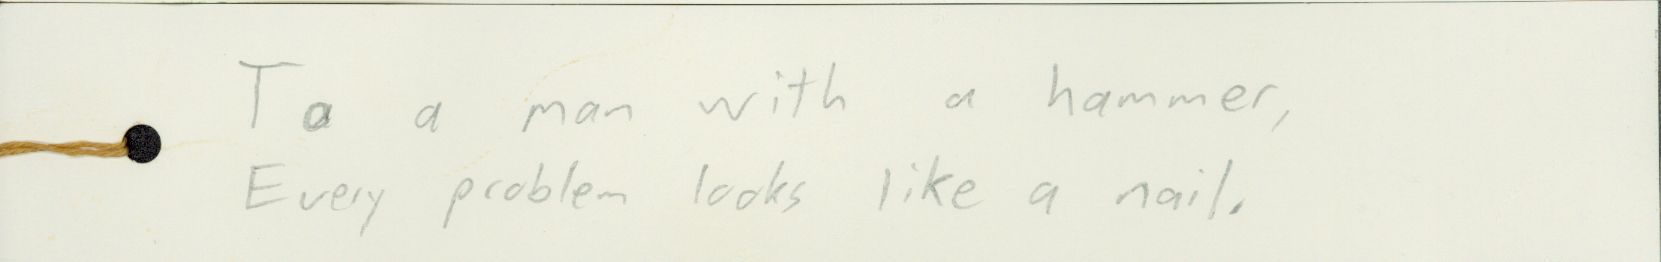 To a man with a hammer,
Every problem looks like a nail.